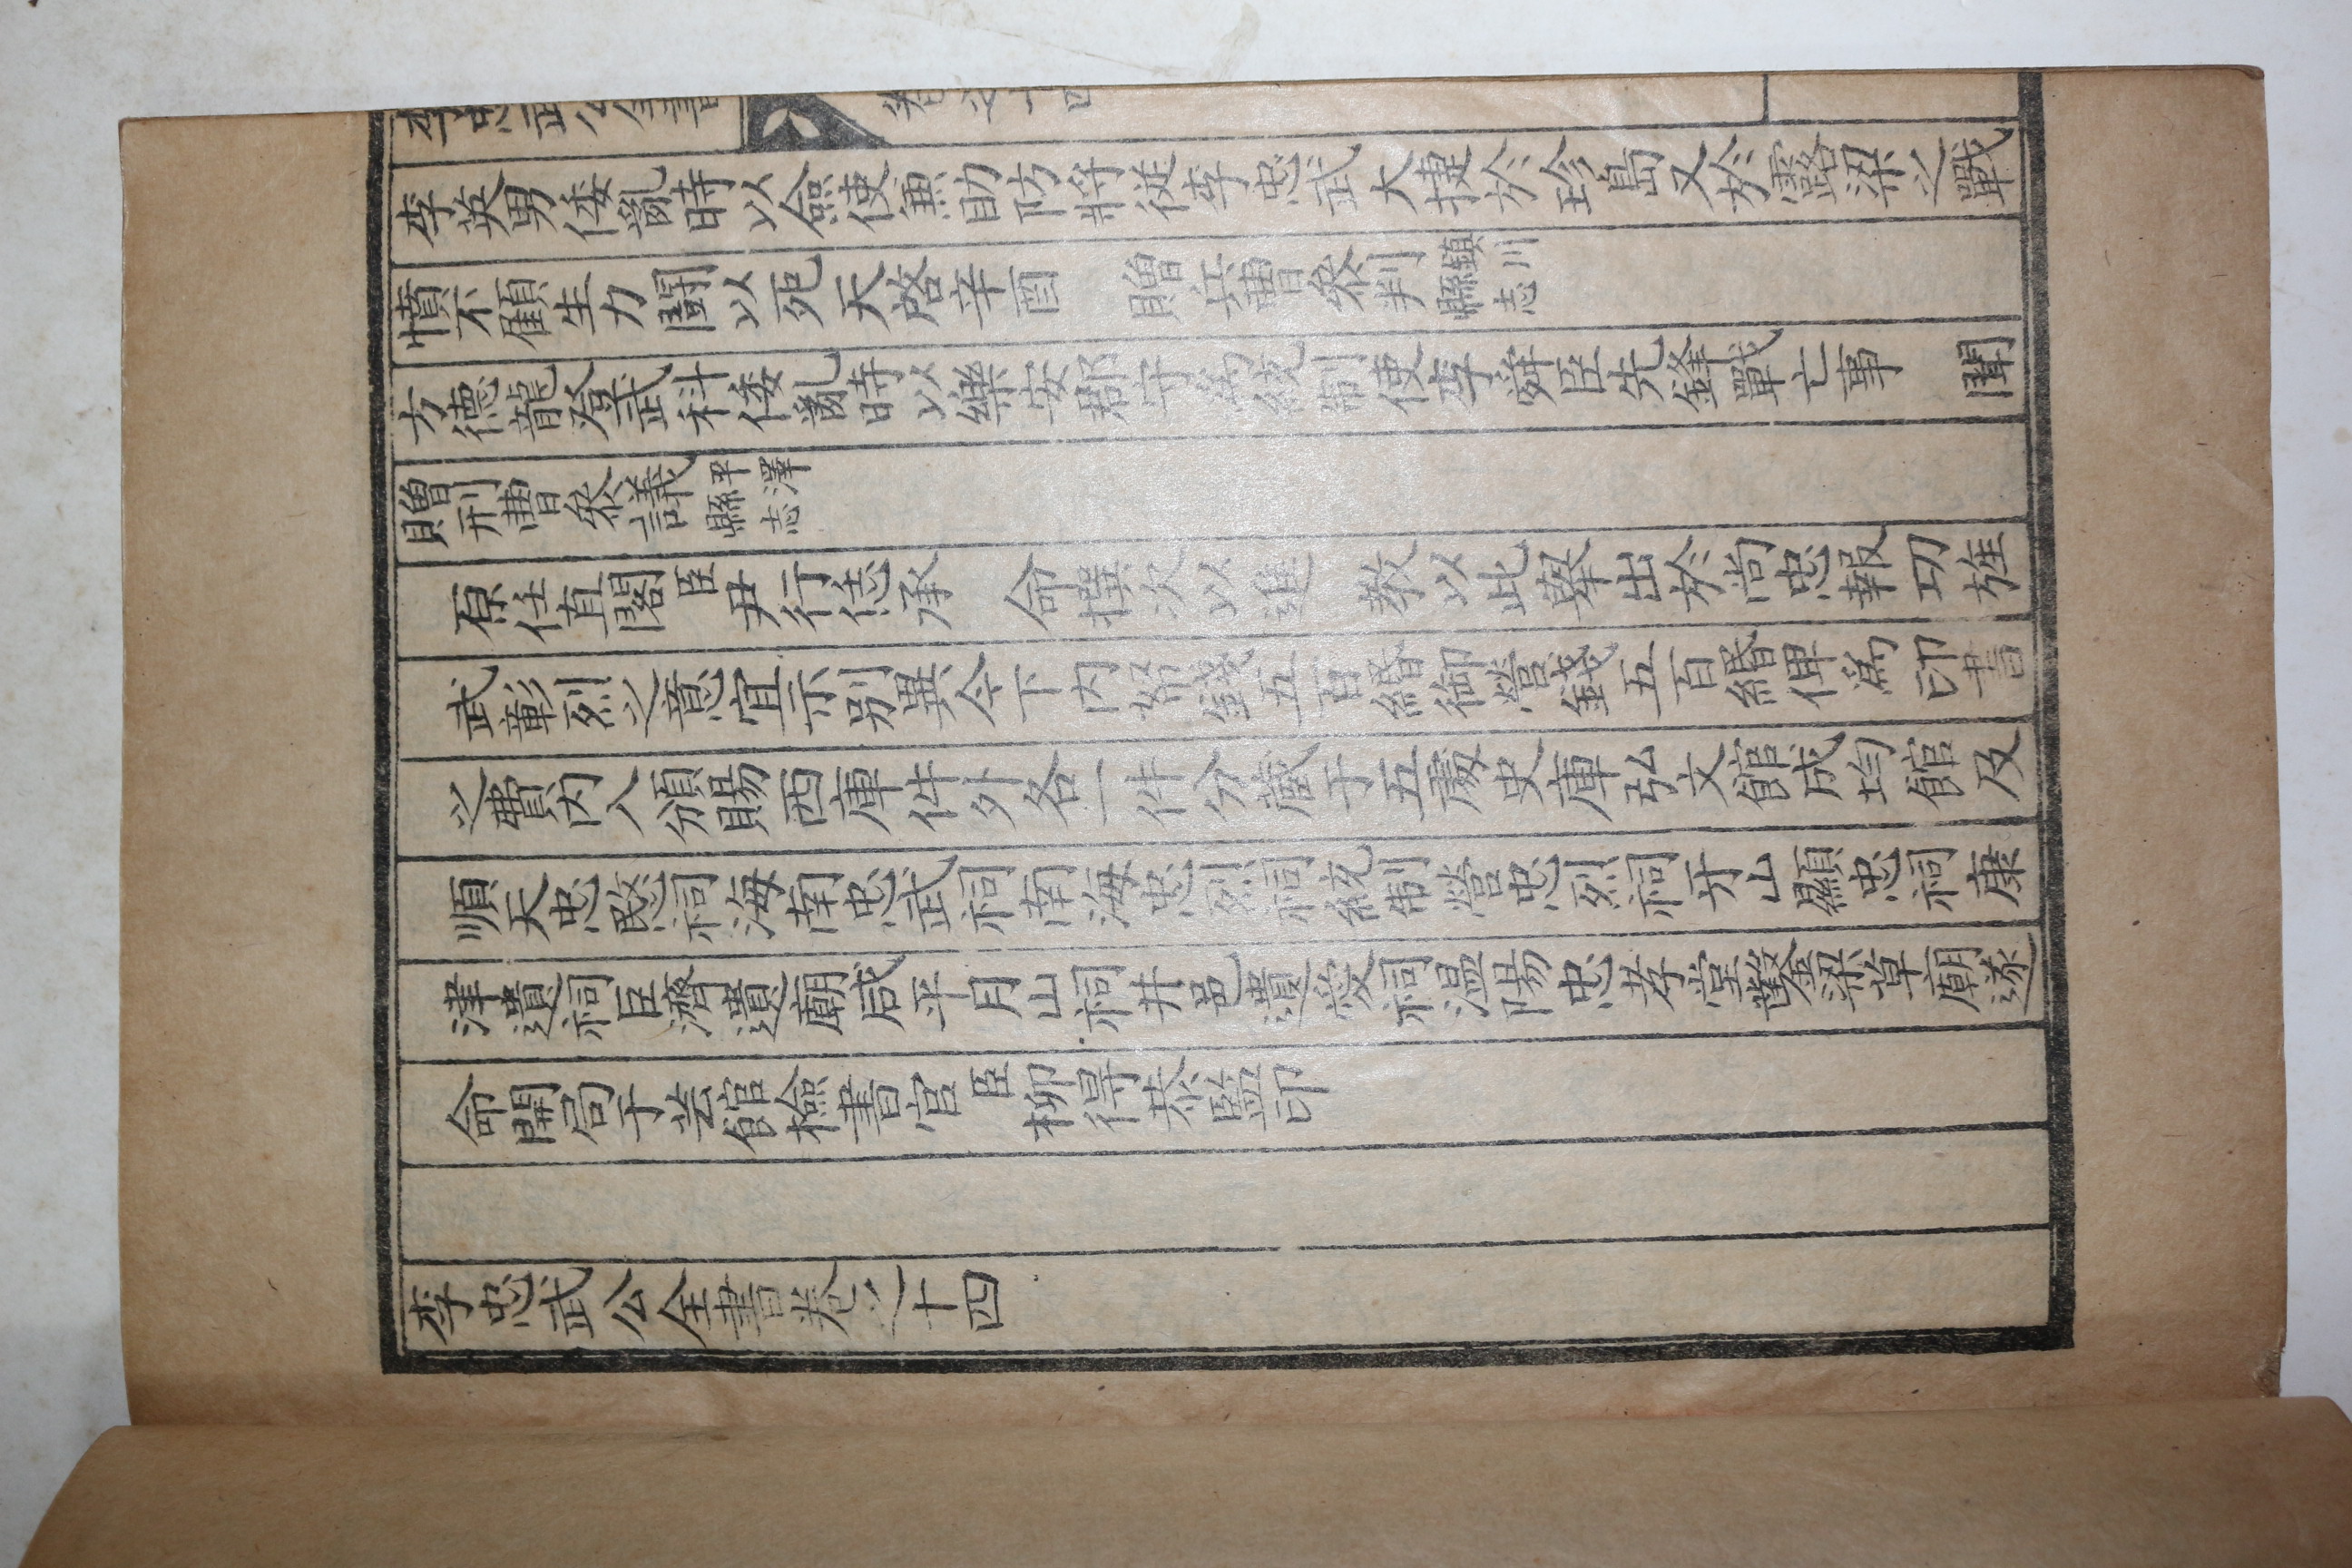 李忠武公全書 卷之十四
李英男倭亂時以僉使兼助防將從李忠武大捷於珍島又於露梁之戰
憤不顧生力鬪以死天啓辛酉 贈兵曹叅判鎮川縣志
方德龍登武科倭亂時以樂安郡守爲統制使李舜臣先鋒戰亡事 聞
贈刑曹叅議平澤縣志
原任直閣臣尹行恁承 命撰次以進 敎以此擧出於尙忠報功旌
武彰烈之意宜示別異今下內帑錢五百緡御營錢五百緡俾爲印書
之費內入頒賜西庫件外各一件分藏于五處史庫弘文館成均館及
順天忠愍祠海南忠武祠南海忠烈祠統制營忠烈祠牙山顯忠祠康
津遺祠臣濟遺廟咸平月山祠井邑遺愛祠溫陽忠孝堂鑿梁草廟遂
命開局于芸館檢書官臣柳得恭監印
李忠武公全書卷之十四